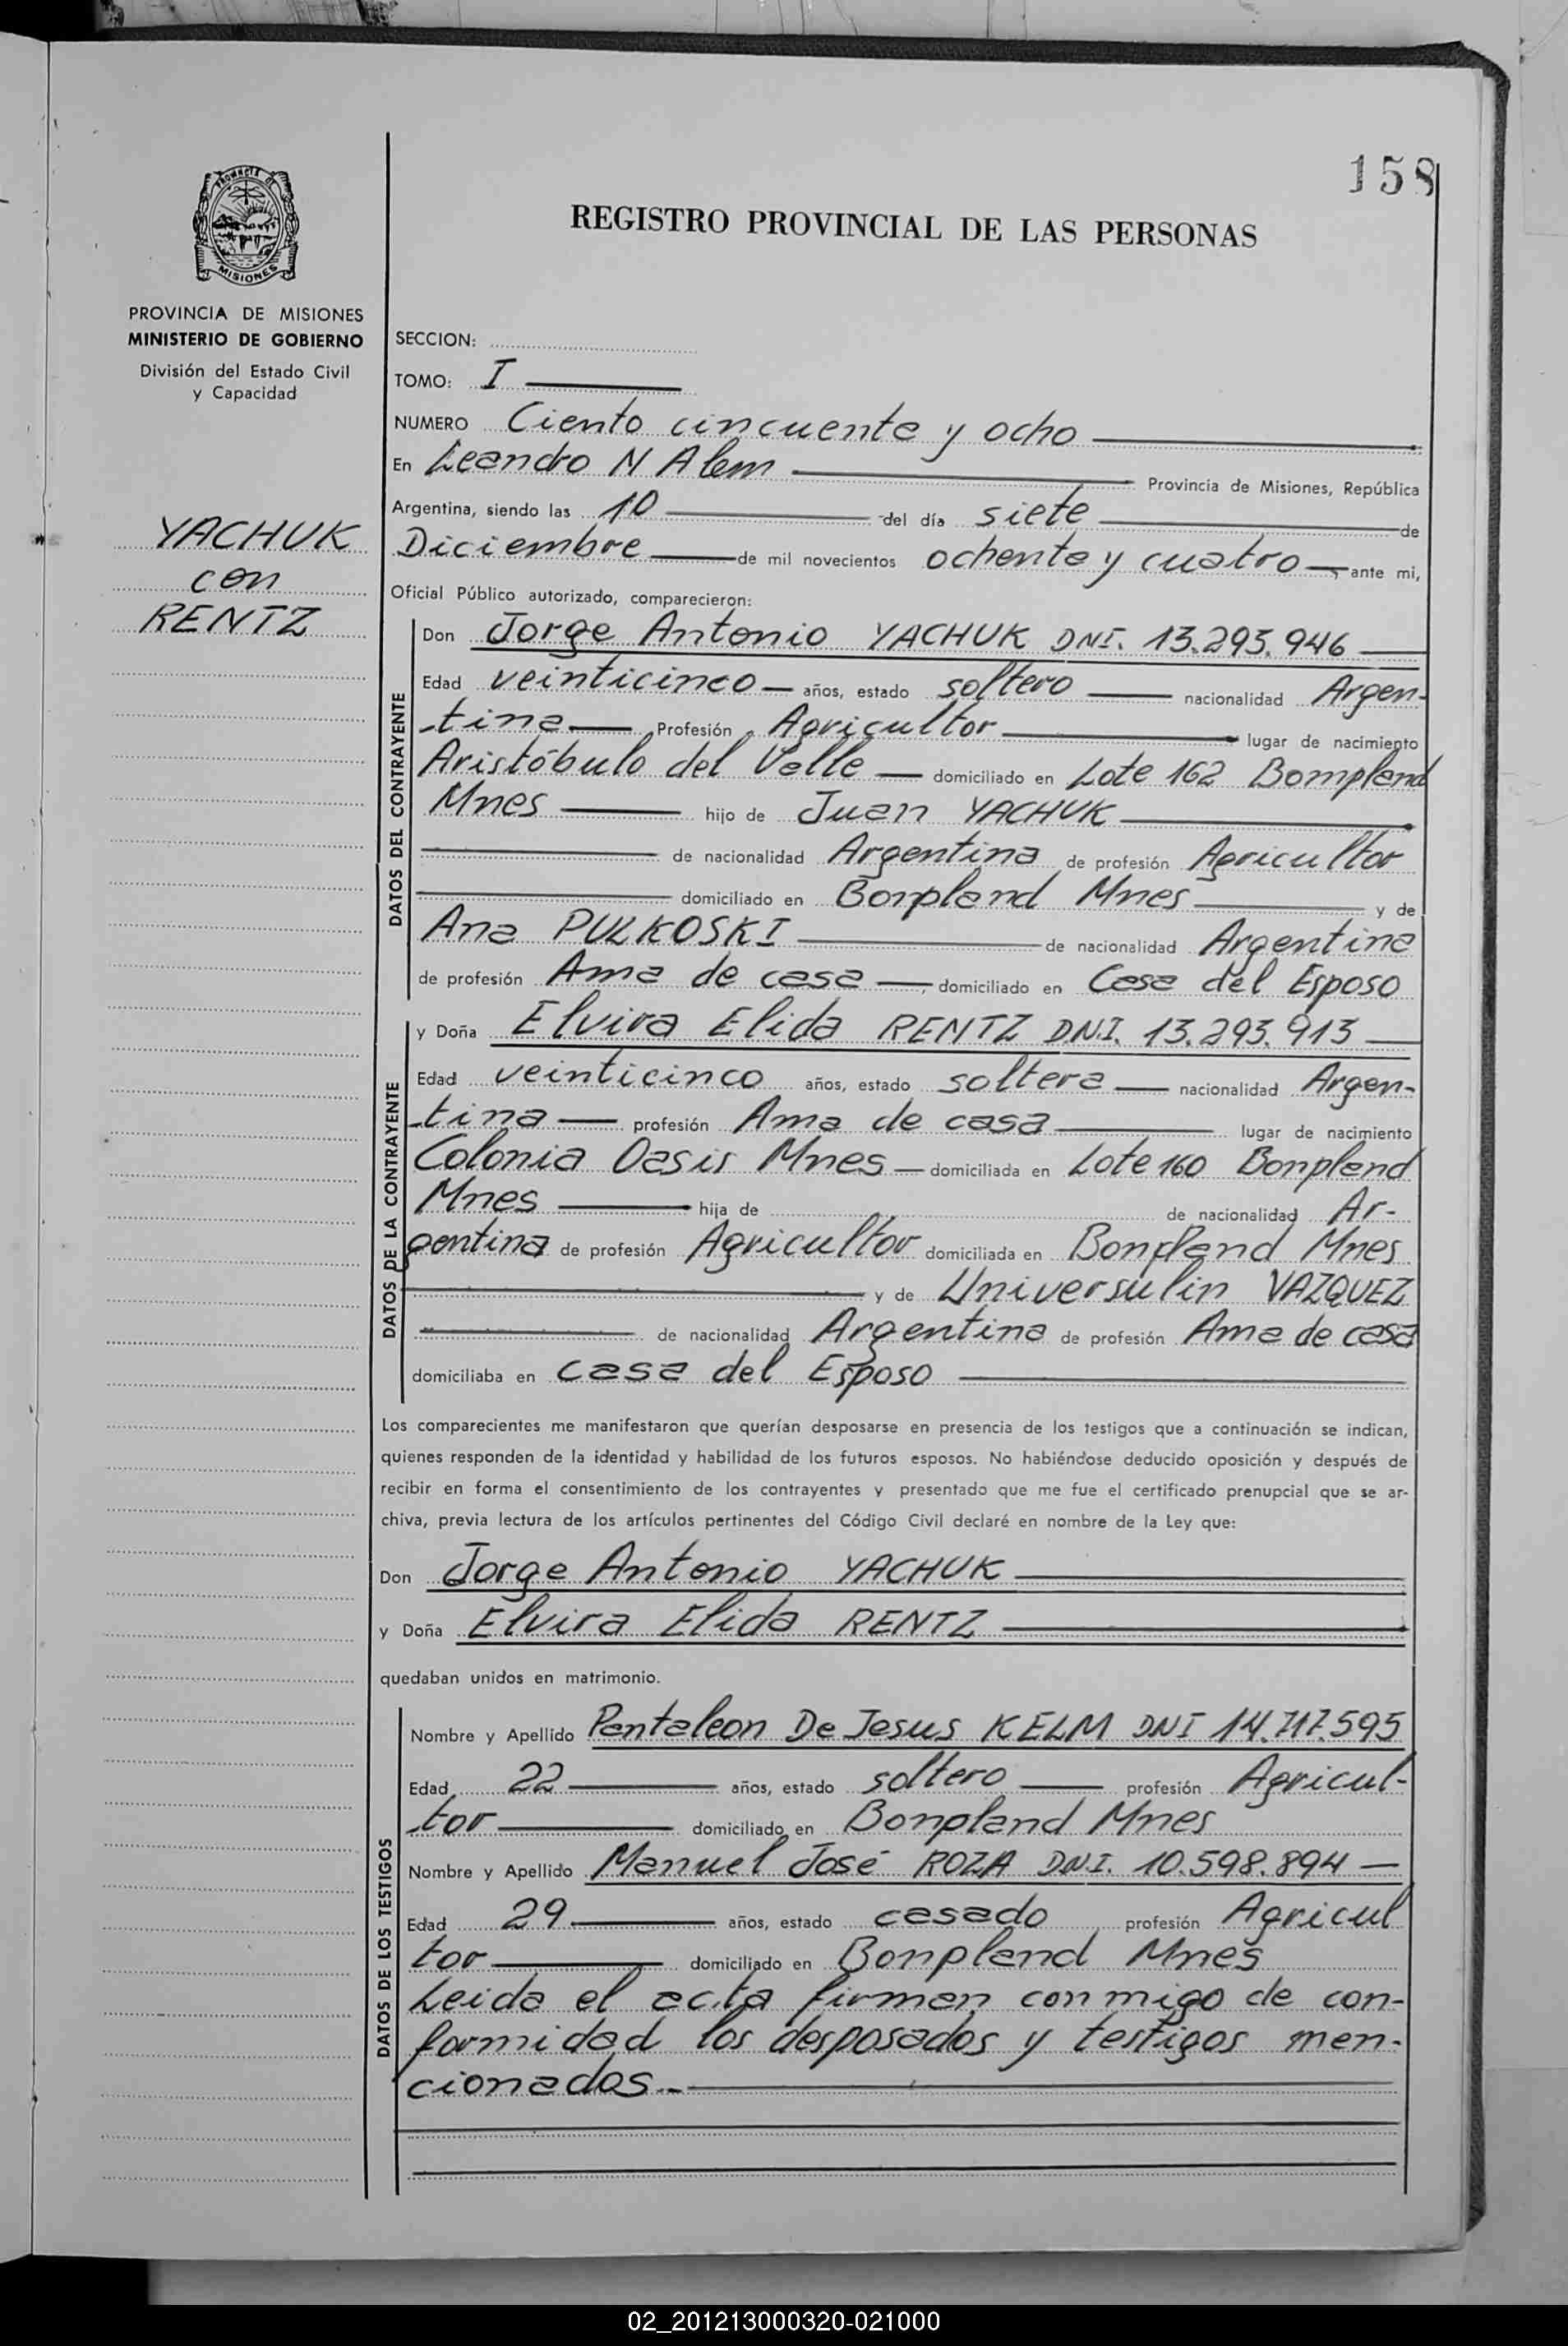 158
REGISTRO PROVINCIAL DE LAS PERSONAS
PROVINCIA DE MISIONES
PROVINCIA DE MISIONES
MINISTERIO DE GOBIERNO
División del Estado Civil
y Capacidad
YACHUK
con
RENTZ
SECCION:
TOMO: I
NUMERO Ciento cincuenta y ocho
En Leandro N Alem Provincia de Misiones, República
Argentina, siendo las 10 del día siete de
Diciembre de mil novecientos ochenta y cuatro, ante mi,
Oficial Público autorizado, comparecieron:
DATOS DEL CONTRAYENTE
Don Jorge Antonio YACHUK DNI. 13.293.946
Edad veinticinco años, estado soltero nacionalidad Argen-
tina Profesión Agricultor lugar de nacimiento
Aristóbulo del Valle domiciliado en Lote 162 Bompland
Mnes hijo de Juan YACHUK
de nacionalidad Argentina de profesión Agricultor
domiciliado en Bonpland Mnes y de
Ana PULKOSKI de nacionalidad Argentina
de profesión Ama de casa, domiciliado en Casa del Esposo
DATOS DE LA CONTRAYENTE
y Doña Elvira Elida RENTZ DN.I. 13.293.913
Edad veinticinco años, estado soltera nacionalidad Argen-
tina profesión Ama de casa lugar de nacimiento
Colonia Oasis Mnes domiciliada en Lote 160 Bonpland
Mnes hija de de nacionalidad Ar-
gentina de profesión Agricultor domiciliada en Bonpland Mnes
y de Universulin VAZQUEZ
de nacionalidad Argentina de profesión Ama de casa
domiciliaba en casa del Esposo
Los comparecientes me manifestaron que querían desposarse en presencia de los testigos que a continuación se indican,
quienes responden de la identidad y habilidad de los futuros esposos. No habiéndose deducido oposición y después de
recibir en forma el consentimiento de los contrayentes y presentado que me fue el certificado prenupcial que se ar-
chiva, previa lectura de los artículos pertinentes del Código Civil declaré en nombre de la Ley que:
Don Jorge Antonio YACHUK
y Doña Elvira Elida RENTZ
quedaban unidos en matrimonio.
DATOS DE LOS TESTIGOS
Nombre y Apellido Pantaleon De Jesus KELM DNI 14.717.595
Edad 22 años, estado soltero profesión Agricul-
tor domiciliado en Bonpland Mnes
Nombre y Apellido Manuel José ROZA DN.I. 10.598.894
Edad 29 años, estado casado profesión Agricul
tor domiciliado en Bonpland Mnes
Leida el acta firman conmigo de con-
formidad los desposados y testigos men-
cionados.-
02_201213000320-021000